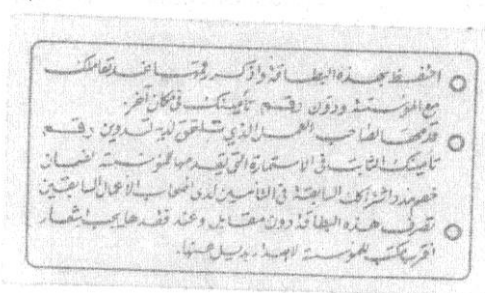 احتفظ بهذه البطاقة واذكر رقمها عند تعاملك
مع المؤسسة ودون رقم تأمينك في مكان آخر.
قدمها لصاحب العمل الذي تلتحق لديه لتدوين رقم
تأمينك الثابت في الاستمارة التي يقدمها للمؤسسة لضمان
مدد اشتراكك السابقة في التأمين لدى أصحاب الأعمال السابقين
تصرف هذه البطاقة دون مقابل وعند فقدها يجب إشعار
أقرب مكتب للمؤسسة لإصدار بديل عنها.